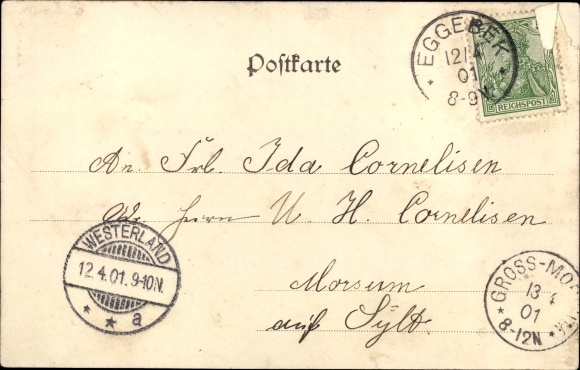 Postkarte
EGGEBEK
12/4
01
8-9N
REICHSPOST
An Frl. Ida Cornelisen
Herrn U. H. Cornelisen
Morsum
auf Sylt.
WESTERLAND
12.4.01. 9-10N.
a
GROSS-MO
13 4
01
8-12N